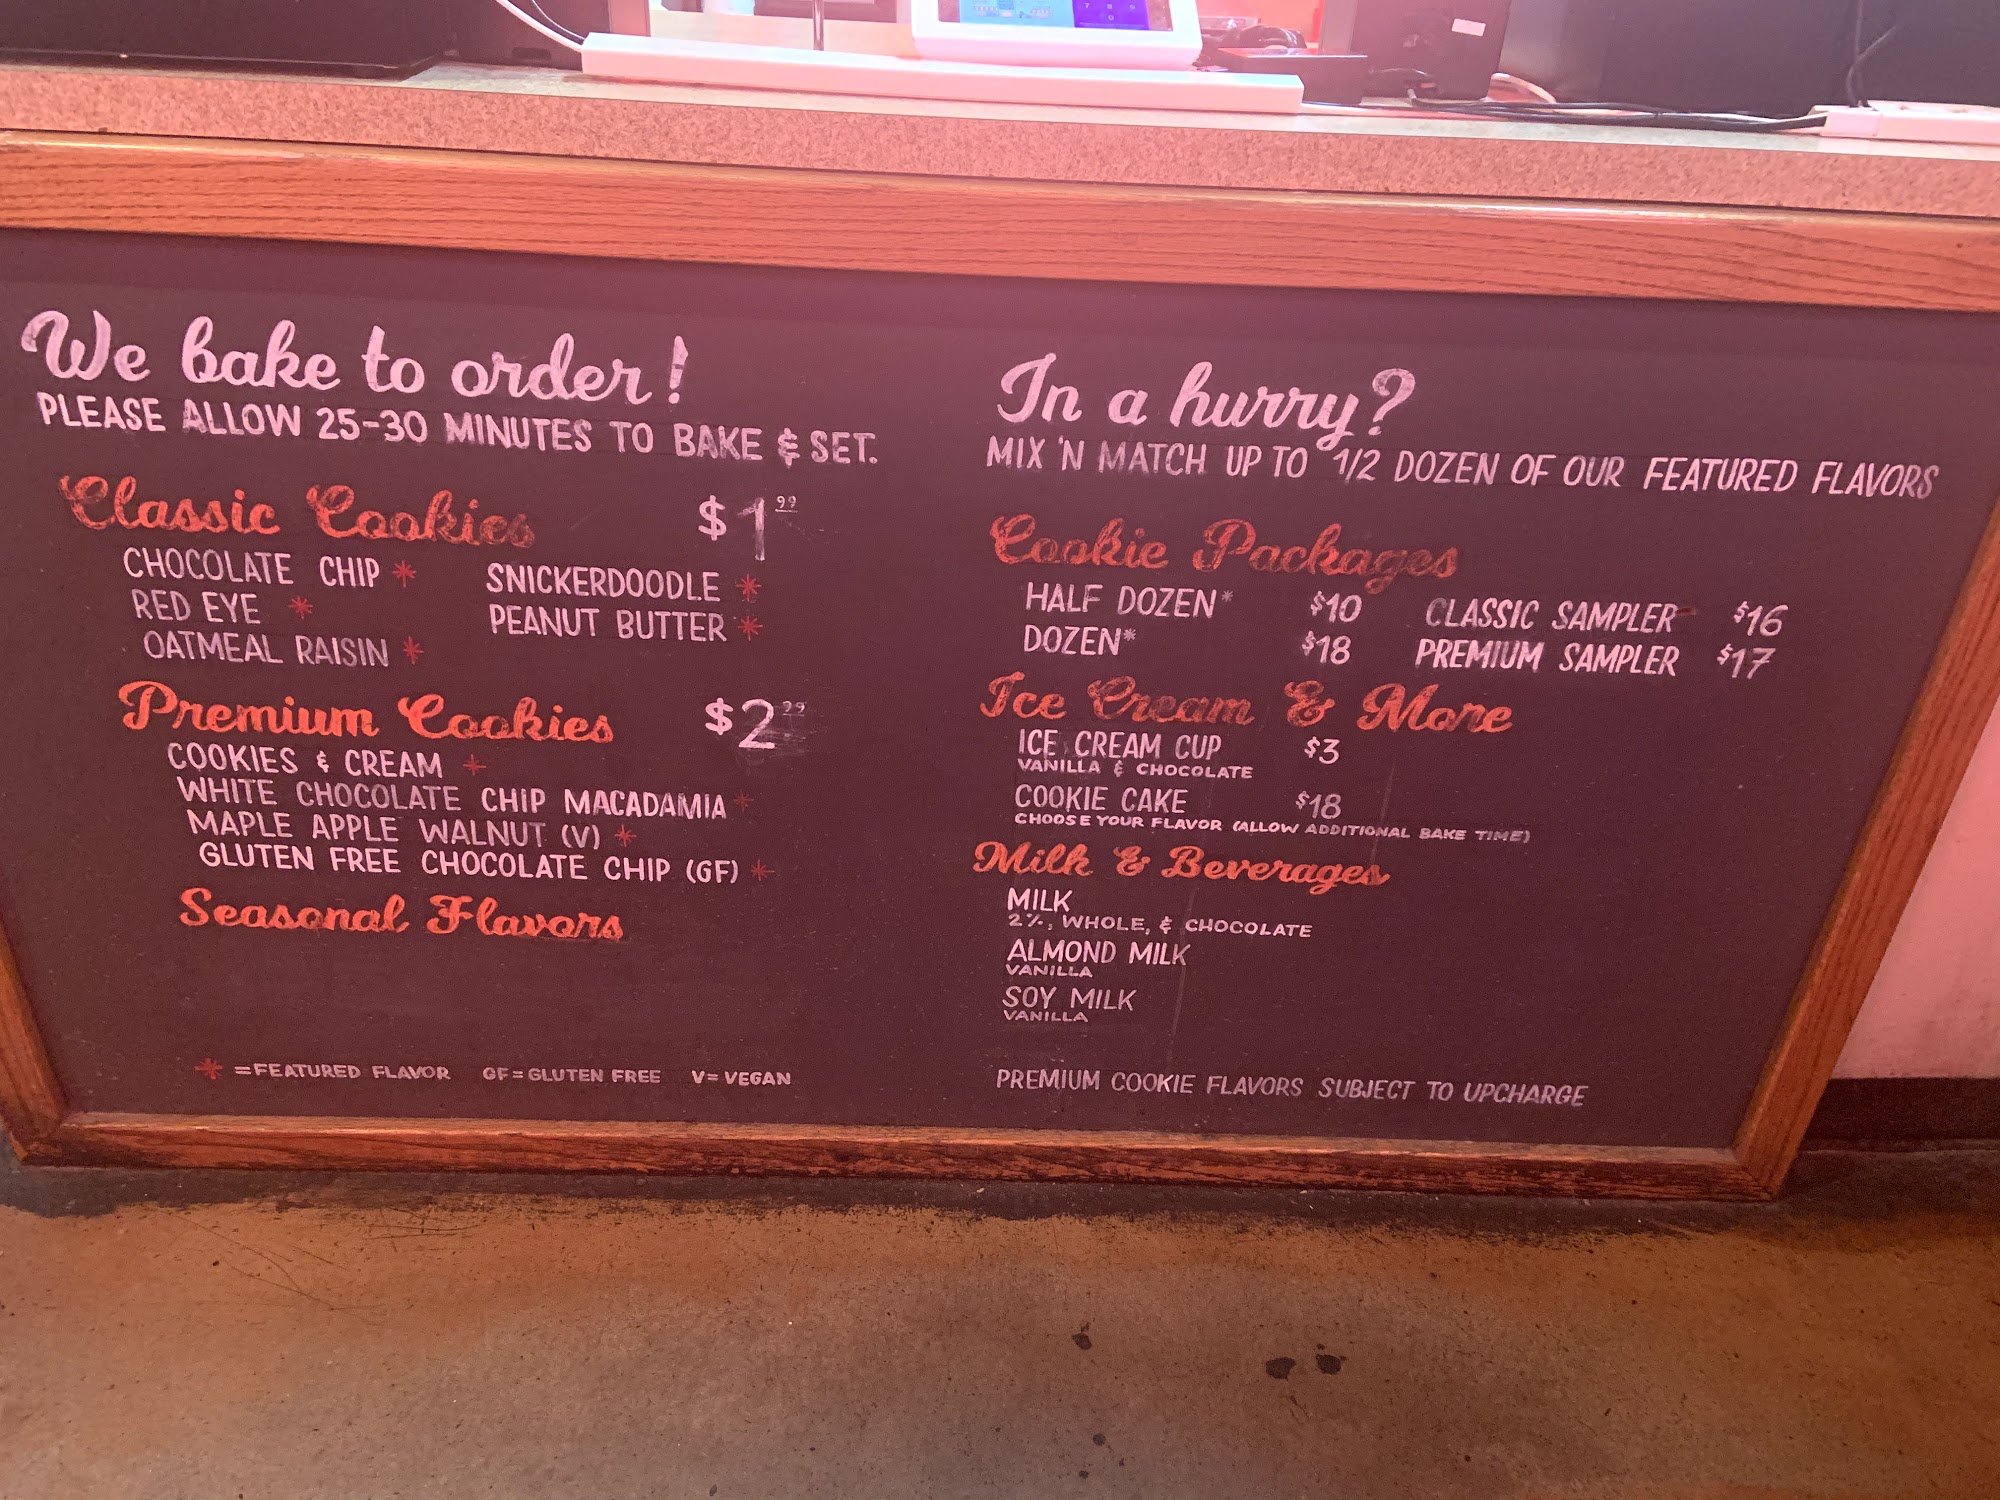 We bake to order!
PLEASE ALLOW 25-30 MINUTES TO BAKE & SET.
Classic Cookies $1.99
CHOCOLATE CHIP * SNICKERDOODLE *
RED EYE * PEANUT BUTTER *
OATMEAL RAISIN *
Premium Cookies $2.99
COOKIES & CREAM *
WHITE CHOCOLATE CHIP MACADAMIA *
MAPLE APPLE WALNUT (V) *
GLUTEN FREE CHOCOLATE CHIP (GF) *
Seasonal Flavors
* =FEATURED FLAVOR GF=GLUTEN FREE V=VEGAN
In a hurry?
MIX 'N MATCH UP TO 1/2 DOZEN OF OUR FEATURED FLAVORS
Cookie Packages
HALF DOZEN* $10 CLASSIC SAMPLER $16
DOZEN* $18 PREMIUM SAMPLER $17
Ice Cream & More
ICE CREAM CUP $3
VANILLA & CHOCOLATE
COOKIE CAKE $18
CHOOSE YOUR FLAVOR (ALLOW ADDITIONAL BAKE TIME)
Milk & Beverages
MILK
2%, WHOLE, & CHOCOLATE
ALMOND MILK
VANILLA
SOY MILK
VANILLA
PREMIUM COOKIE FLAVORS SUBJECT TO UPCHARGE